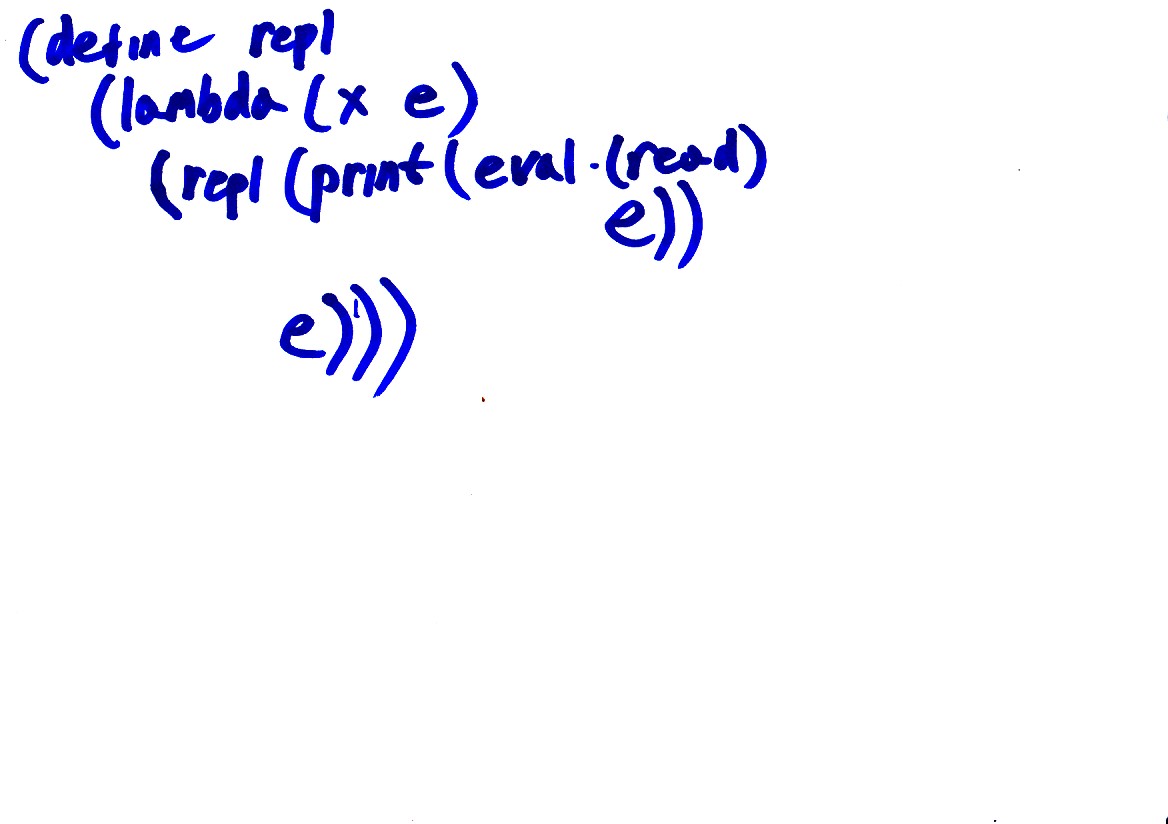 (define repl
(lambda (x e)
(repl (print (eval (read)
e))
e)))